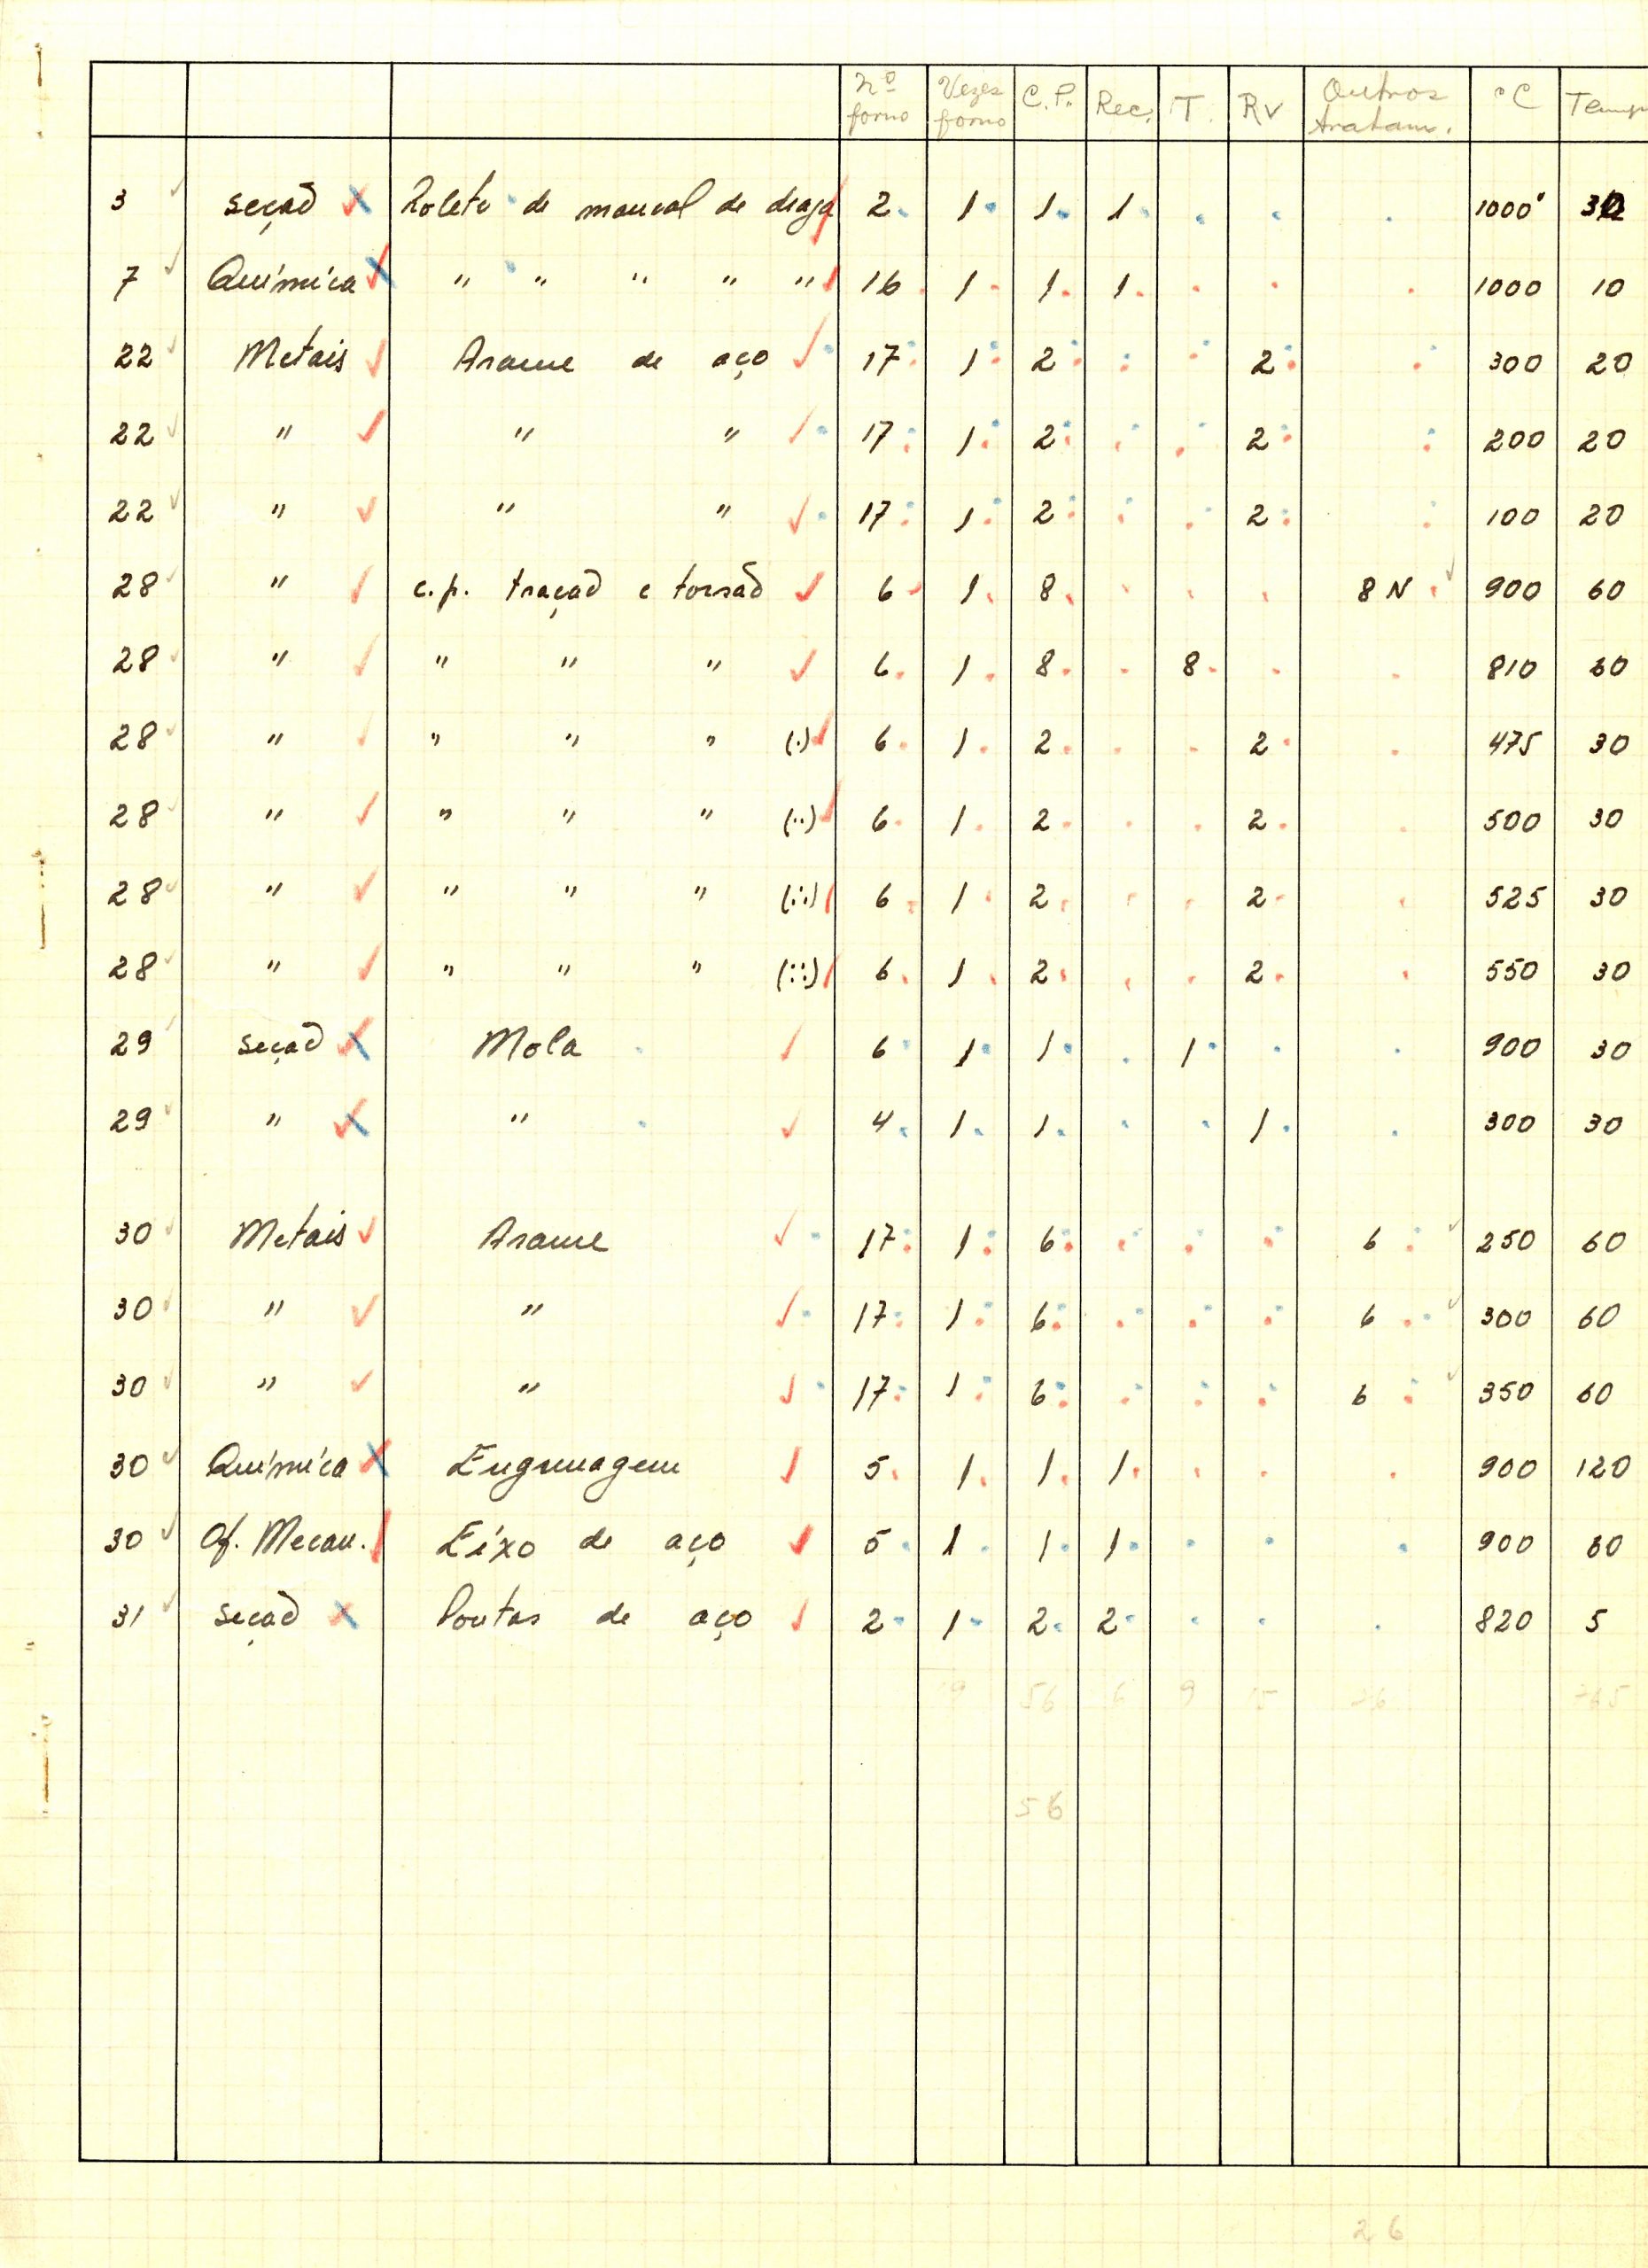 Nº forno Vezes forno C.P. Rec. T. Rv Outros tratam. °C Temp
3 seção Rolete de mancal de draga 2 1 1 1 1000° 30
7 Química " " " " " 16 1 1 1 1000 10
22 Metais Arame de aço 17 1 2 2 300 20
22 " " " 17 1 2 2 200 20
22 " " " 17 1 2 2 100 20
28 " c.p. tração e torsão 6 1 8 8 N 900 60
28 " " " " 6 1 8 8 810 60
28 " " " " (·) 6 1 2 2 475 30
28 " " " " (··) 6 1 2 2 500 30
28 " " " " (∴) 6 1 2 2 525 30
28 " " " " (::) 6 1 2 2 550 30
29 seção Mola 6 1 1 1 900 30
29 " " 4 1 1 1 300 30
30 Metais Arame 17 1 6 6 250 60
30 " " 17 1 6 6 300 60
30 " " 17 1 6 6 350 60
30 Química Engrenagem 5 1 1 1 900 120
30 Of. Mecan. Eixo de aço 5 1 1 1 900 60
31 seção Pontas de aço 2 1 2 2 820 5
19 56 6 9 15 26
56
26